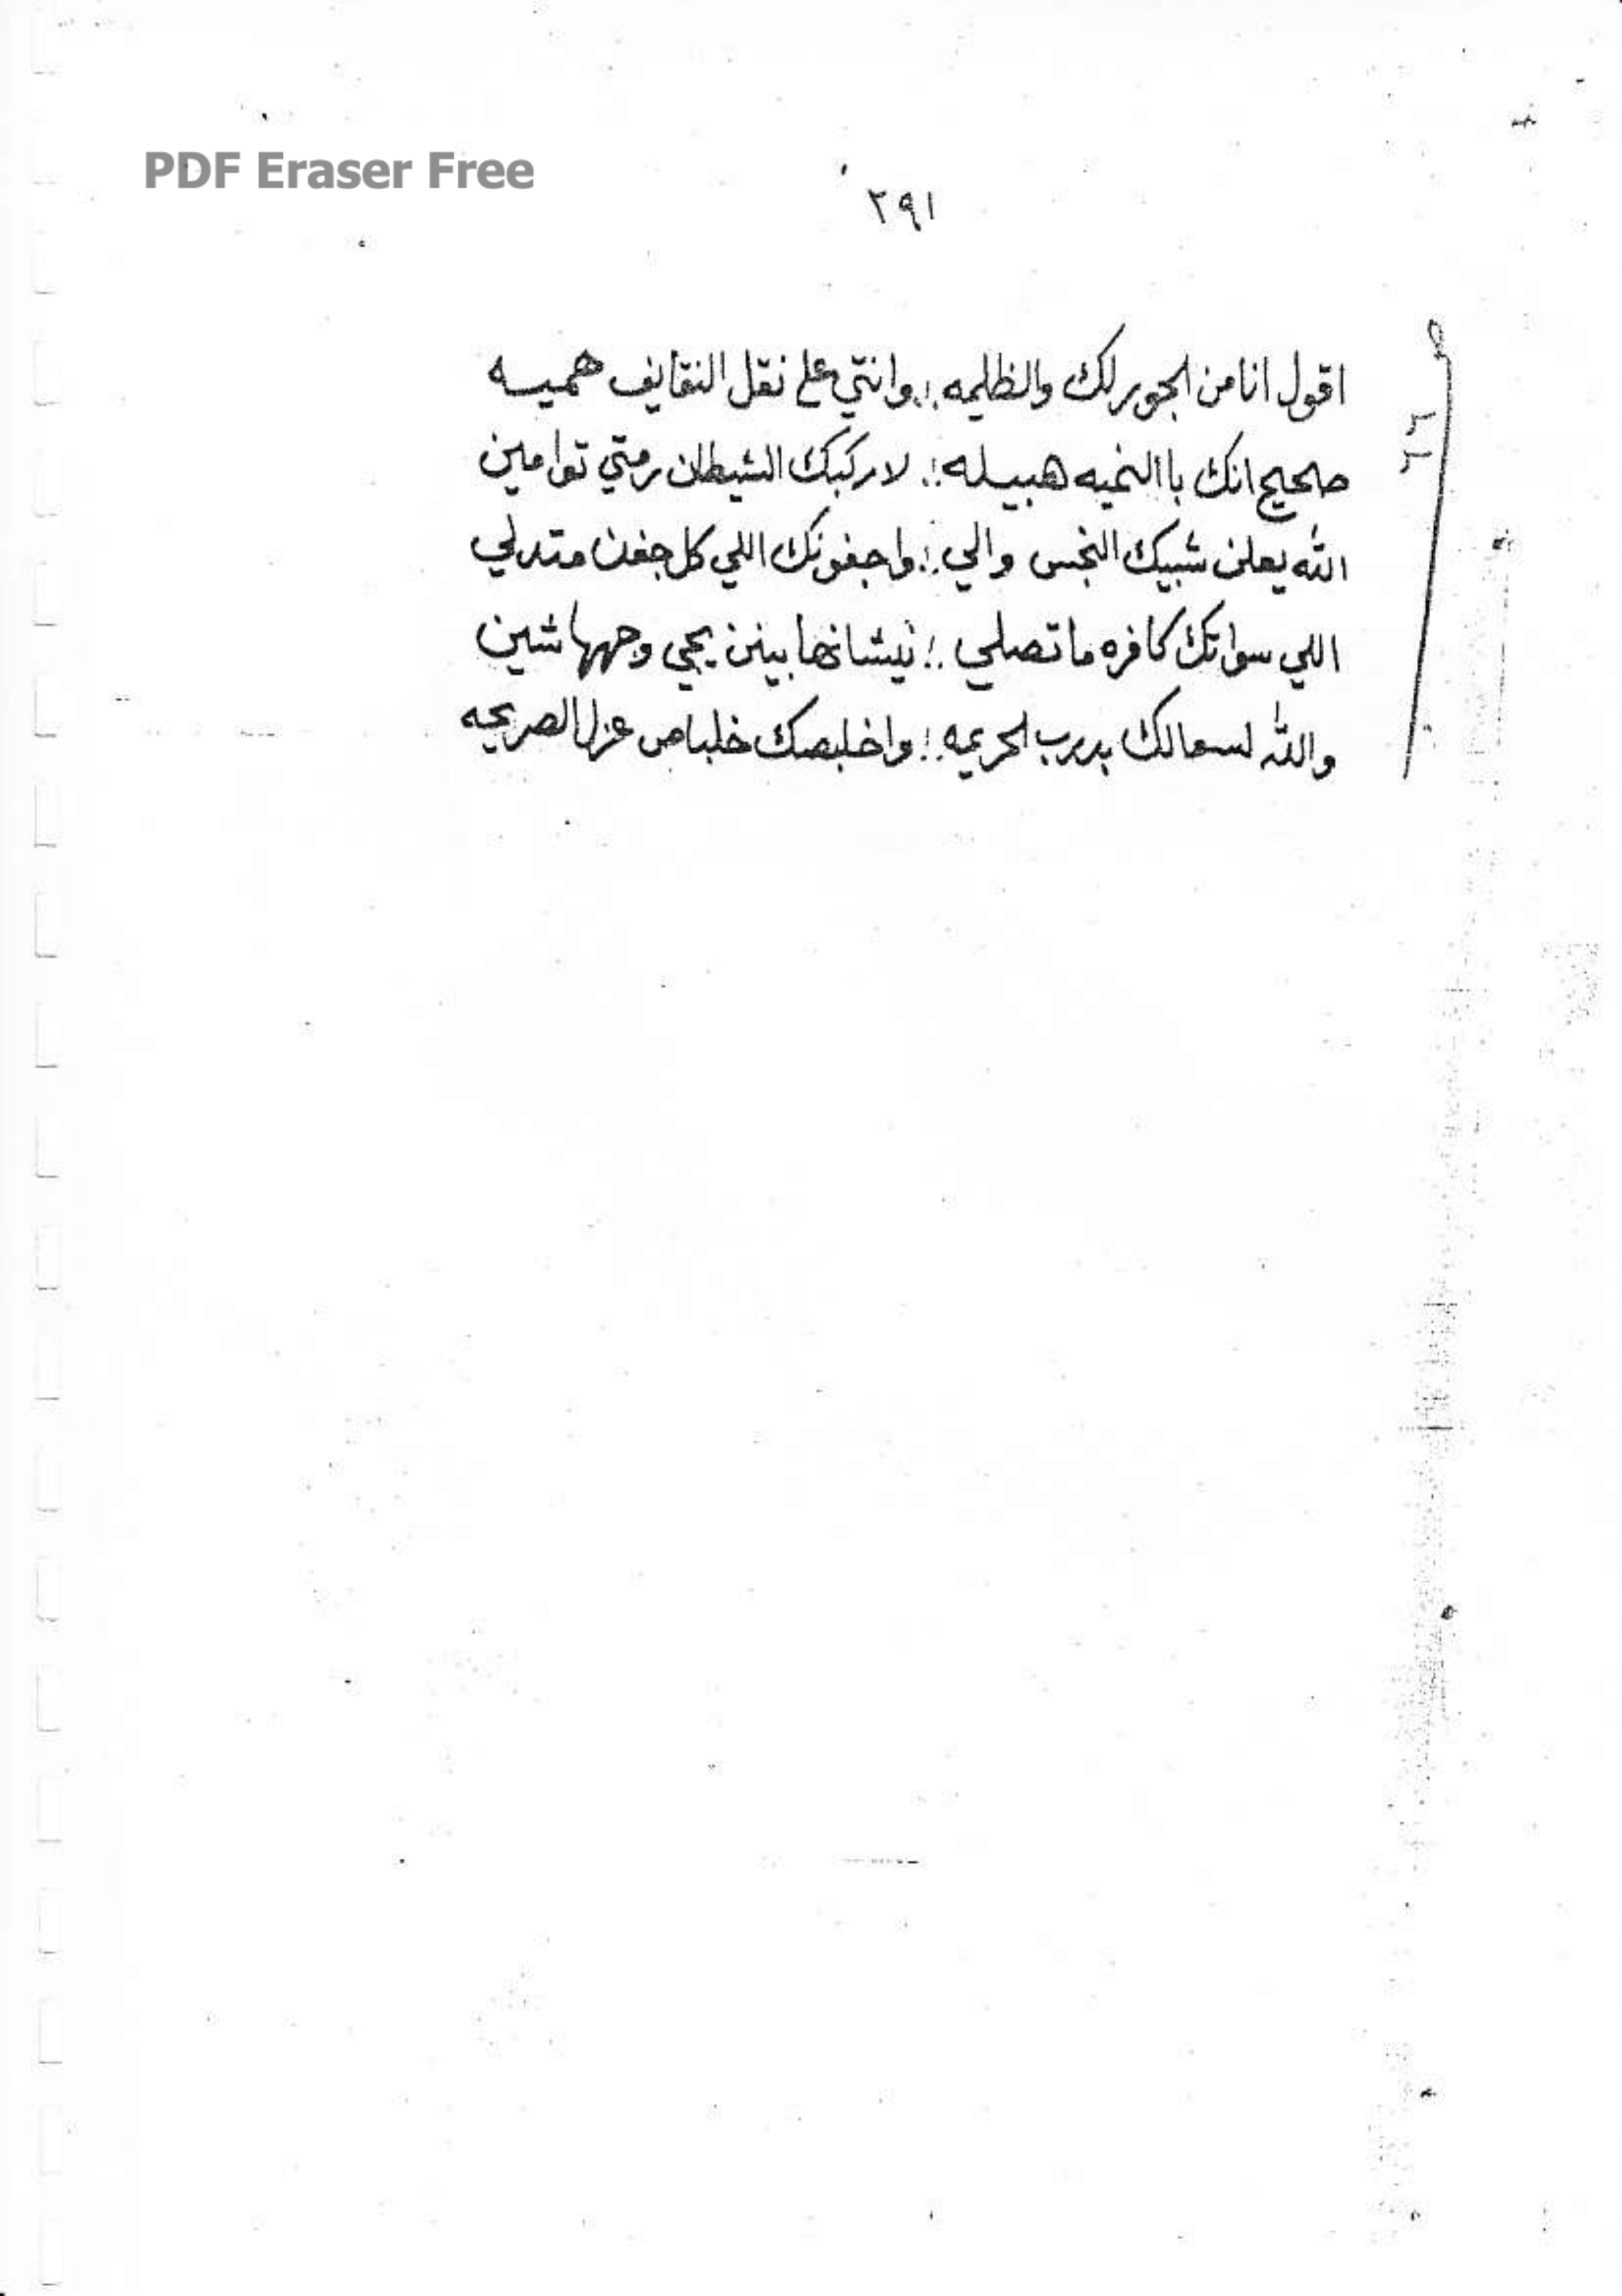 PDF Eraser Free
٢٩١
اقول انا من الجور لك والظليمه :. وانتي على نقل النقايف هميسه
صحيح انك با النميه هبيله :. لا ركبك الشيطان رمتي توامين
الله يعلن شبيك النجس والي :. واجفونك اللي كل جفن متدلي
اللي سواتك كافره ما تصلي :. نيشانها بينن يجي وجهها شين
والله لسعالك بدرب الحريمه :. واخلبصك خلباص عزل الصريحه